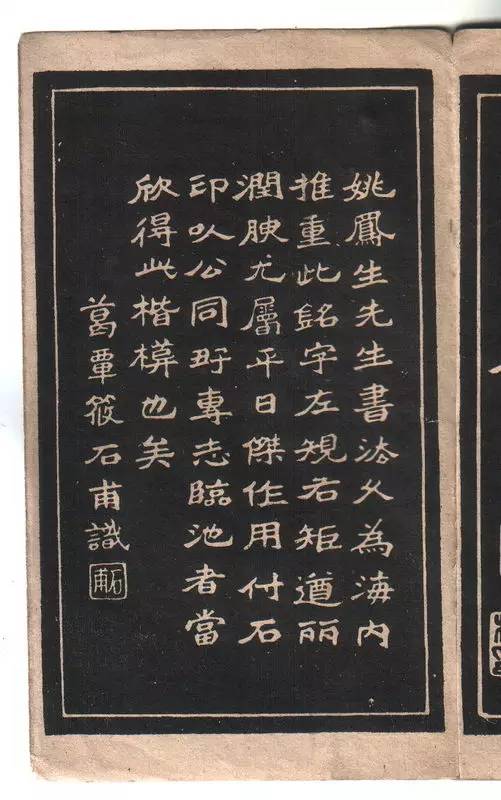 姚鳳生先生書法久為海內
推重此銘字左規右矩遒丽
潤腴尤屬平日傑作用付石
印以公同好專志臨池者當
欣得此楷模也矣
葛覃筱石甫識
石甫